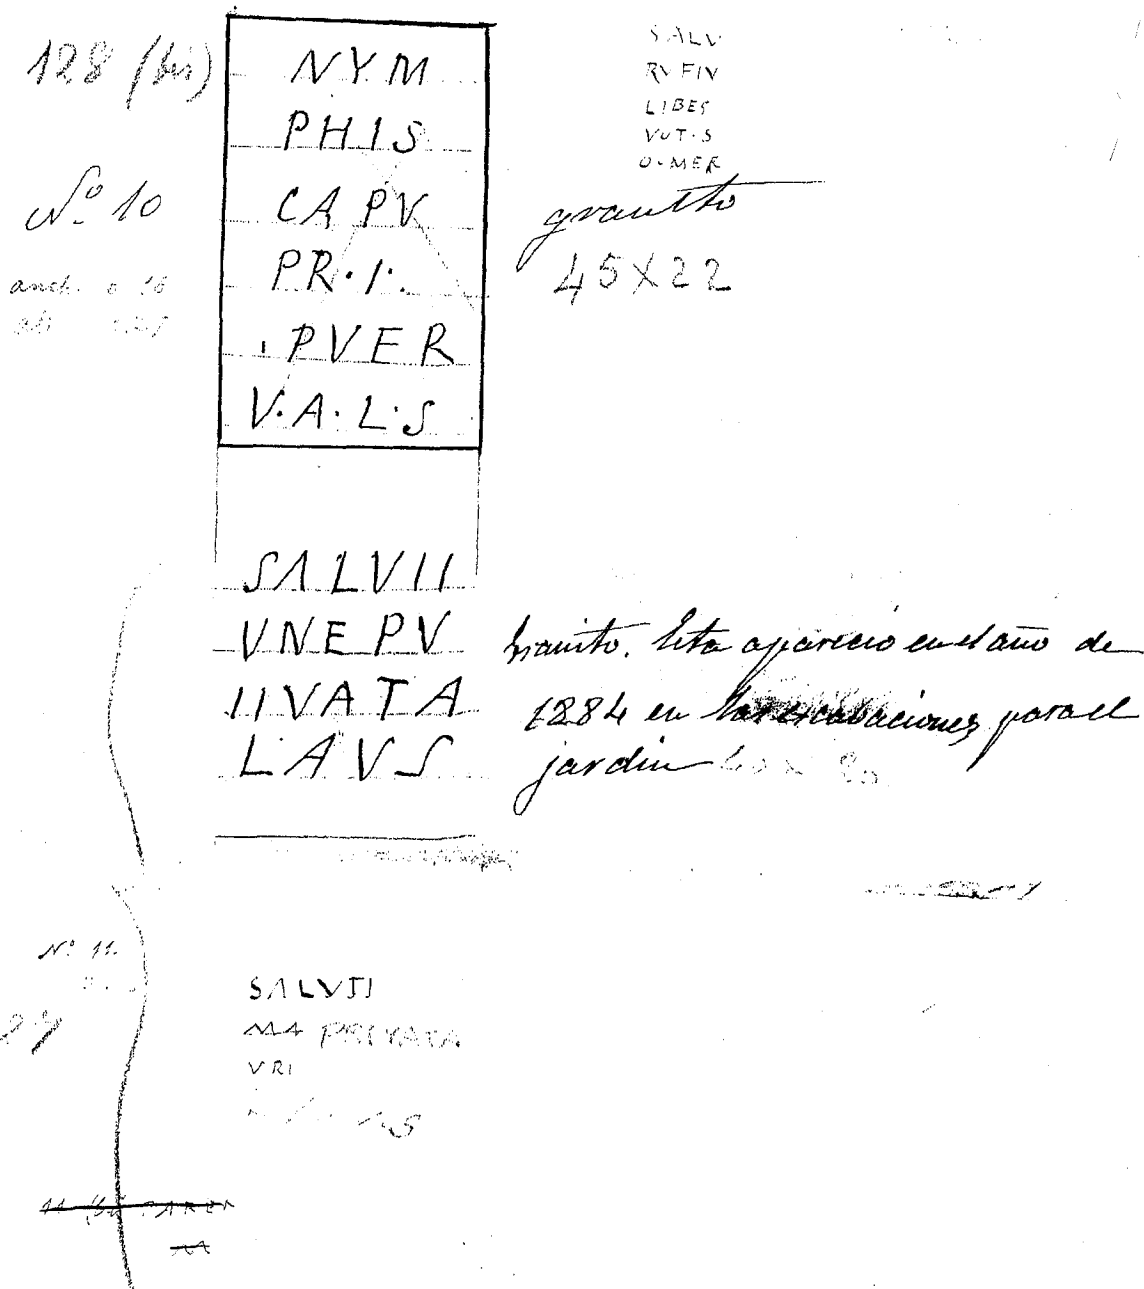 128 (bis)
NYM
PHIS
CAPV
PR·I·
·PVER
V·A·L·S
Nº 10
SALV
RVFIV
LIBES
VOT·S
O·MER
granitto
45X22
SALVII
VNEPV
IIVATA
LAVS
Granito. Esta apareció en el año de
1884 en las excabaciones para el
jardin 40 x 20
Nº 11
SALVII
MA PRIVATA
VRI